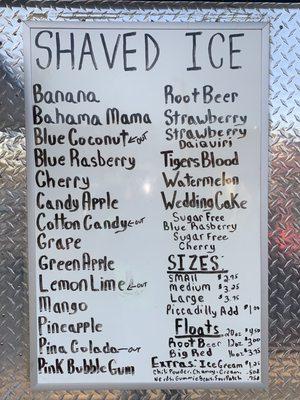 SHAVED ICE
Banana
Bahama Mama
Blue Coconut ←out
Blue Rasberry
Cherry
Candy Apple
Cotton Candy ←out
Grape
Green Apple
Lemon Lime ←out
Mango
Pineapple
Pina Colada ←out
Pink Bubble Gum
Root Beer
Strawberry
Strawberry
Daiquiri
Tigers Blood
Watermelon
Wedding Cake
Sugar Free
Blue Rasberry
Sugar Free
Cherry
SIZES
SMALL $2.75
medium $3.25
Large $3.75
Piccadilly Add $1.00
Floats 20oz
Root Beer 12oz
Big Red 16oz $3.75
Extras: Ice Cream
Chili Powder, Chamoy, Cream .50¢
Nerds, Gummie Bears, Sour Patch .75¢